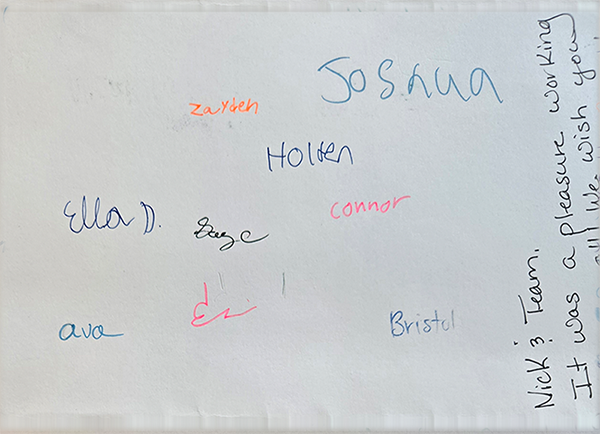 Joshua
Zayden
Holden
Connor
Ella D.
Sage
ava
Bristol
Nick & Team,
It was a pleasure working
all! We wish you